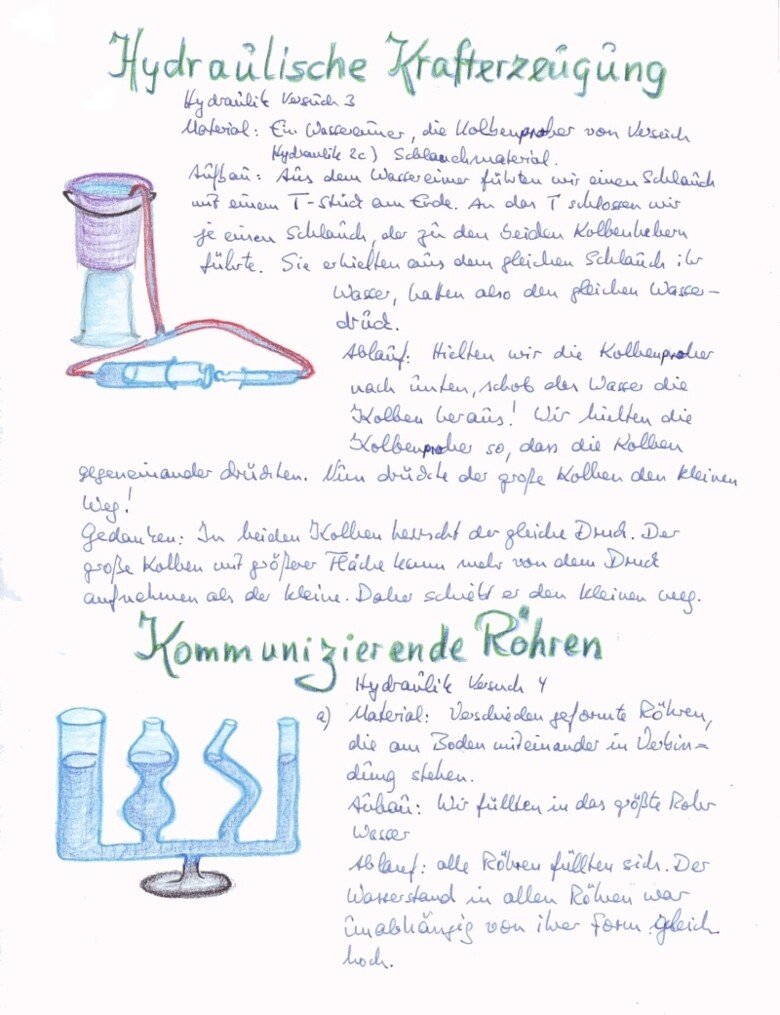 Hydraulische Krafterzeugung
Hydraulik Versuch 3
Material: Ein Wassereimer, die Kolbenprober von Versuch
Hydraulik 2c) Schlauchmaterial.
Aufbau: Aus dem Wassereimer führten wir einen Schlauch
mit einem T-Stück am Ende. An das T schlossen wir
je einen Schlauch, der zu den beiden Kolbenhebern
führte. Sie erhielten aus dem gleichen Schlauch ihr
Wasser, hatten also den gleichen Wasser-
druck.
Ablauf: Hielten wir die Kolbenprober
nach unten, schob das Wasser die
Kolben heraus! Wir hielten die
Kolbenprober so, dass die Kolben
gegeneinander drückten. Nun drückte der große Kolben den kleinen
Weg!
Gedanken: In beiden Kolben herrscht der gleiche Druck. Der
große Kolben mit größerer Fläche kann mehr von dem Druck
aufnehmen als der kleine. Daher schiebt er den kleinen weg.
Kommunizierende Röhren
Hydraulik Versuch 4
a) Material: Verschieden geformte Röhren,
die am Boden miteinander in Verbin-
dung stehen.
Aufbau: Wir füllten in das größte Rohr
Wasser
Ablauf: alle Röhren füllten sich. Der
Wasserstand in allen Röhren war
unabhängig von ihrer Form gleich
hoch.